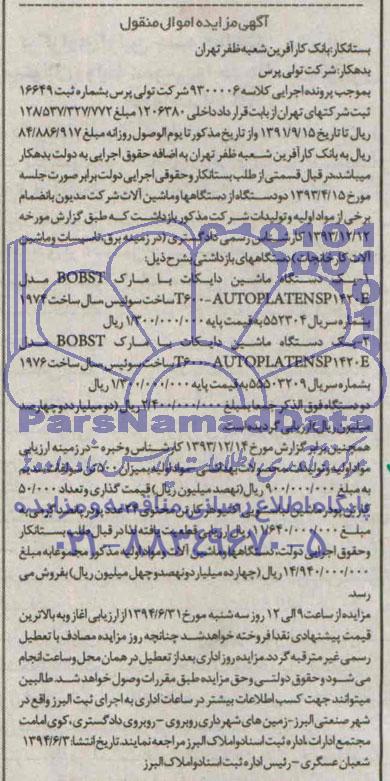 آگهی مزایده اموال منقول
بستانکار: بانک کارآفرین شعبه ظفر تهران
بدهکار: شرکت تولی پرس
بموجب پرونده اجرایی کلاسه 9300006 شرکت تولی پرس بشماره ثبت 16649
ثبت شرکتهای تهران از بابت قرارداد داخلی 1206380 مبلغ 128/537/327/772
ریال تا تاریخ 1391/9/15 و از تاریخ مذکور تا یوم الوصول روزانه مبلغ 84/886/917
ریال به بانک کارآفرین شعبه ظفر تهران به اضافه حقوق اجرایی به دولت بدهکار
میباشد در قبال قسمتی از طلب بستانکار و حقوق اجرایی دولت برابر صورت جلسه
مورخ 1393/4/15 دو دستگاه از دستگاهها و ماشین آلات شرکت مدیون بانضمام
برخی از مواد اولیه و تولیدات شرکت مذکور بازداشت که طبق گزارش مورخه
1393/12/12 کارشناس رسمی دادگستری (در زمینه برق، تاسیسات و ماشین
آلات کارخانجات) دستگاههای بازداشتی بشرح ذیل:
1- یک دستگاه ماشین دایکات با مارک BOBST مدل
T600-AUTOPLATENSP1420E ساخت سوئیس سال ساخت 1974
بشماره سریال 552304 به قیمت پایه 1/300/000/000 ریال
2- یک دستگاه ماشین دایکات با مارک BOBST مدل
T600-AUTOPLATENSP1420E ساخت سوئیس سال ساخت 1976
بشماره سریال 55503209 به قیمت پایه 1/300/000/000 ریال
دو دستگاه فوق الذکر جمعا بمبلغ 2/400/000/000 ریال (دو میلیارد و چهارصد
میلیون ریال) ارزیابی گردیده است
همچنین برابر گزارش مورخ 1393/12/14 کارشناس و خبره - در زمینه ارزیابی
مواد اولیه و تولیدات محصولات بهداشتی مواد اولیه بمیزان 500
به مبلغ 900/000/000 ریال (نهصد میلیون ریال) قیمت گذاری و تعداد 50/000
مبلغ 11/640/000/000 ریال ارزیابی قطعیت یافته لذا در قبال طلب بستانکار
و حقوق اجرایی دولت، دستگاهها و ماشین آلات و مواد اولیه مذکور مجموعا به مبلغ
14/940/000/000 ریال (چهارده میلیارد و نهصد و چهل میلیون ریال) بفروش می
رسد.
مزایده از ساعت 9 الی 12 روز سه شنبه مورخ 1394/6/31 از ارزیابی آغاز و به بالاترین
قیمت پیشنهادی نقدا فروخته خواهد شد چنانچه روز مزایده مصادف با تعطیل
رسمی غیر مترقبه گردد مزایده روز اداری بعد از تعطیل در همان محل و ساعت انجام
می شود و حقوق دولتی و حق مزایده طبق مقررات وصول خواهد شد. طالبین
میتوانند جهت کسب اطلاعات بیشتر در ساعات اداری به اجرای ثبت البرز واقع در
شهر صنعتی البرز - زمین های شهرداری روبروی - روبروی دادگستری، کوی امامت
مجتمع ادارات، اداره ثبت اسناد و املاک البرز مراجعه نمایند. تاریخ انتشار: 1394/6/3
شعبان عسگری - رئیس اداره ثبت اسناد و املاک البرز
ParsNamadData
پایگاه اطلاع رسانی مناقصه و مزایده
021-88349670-5